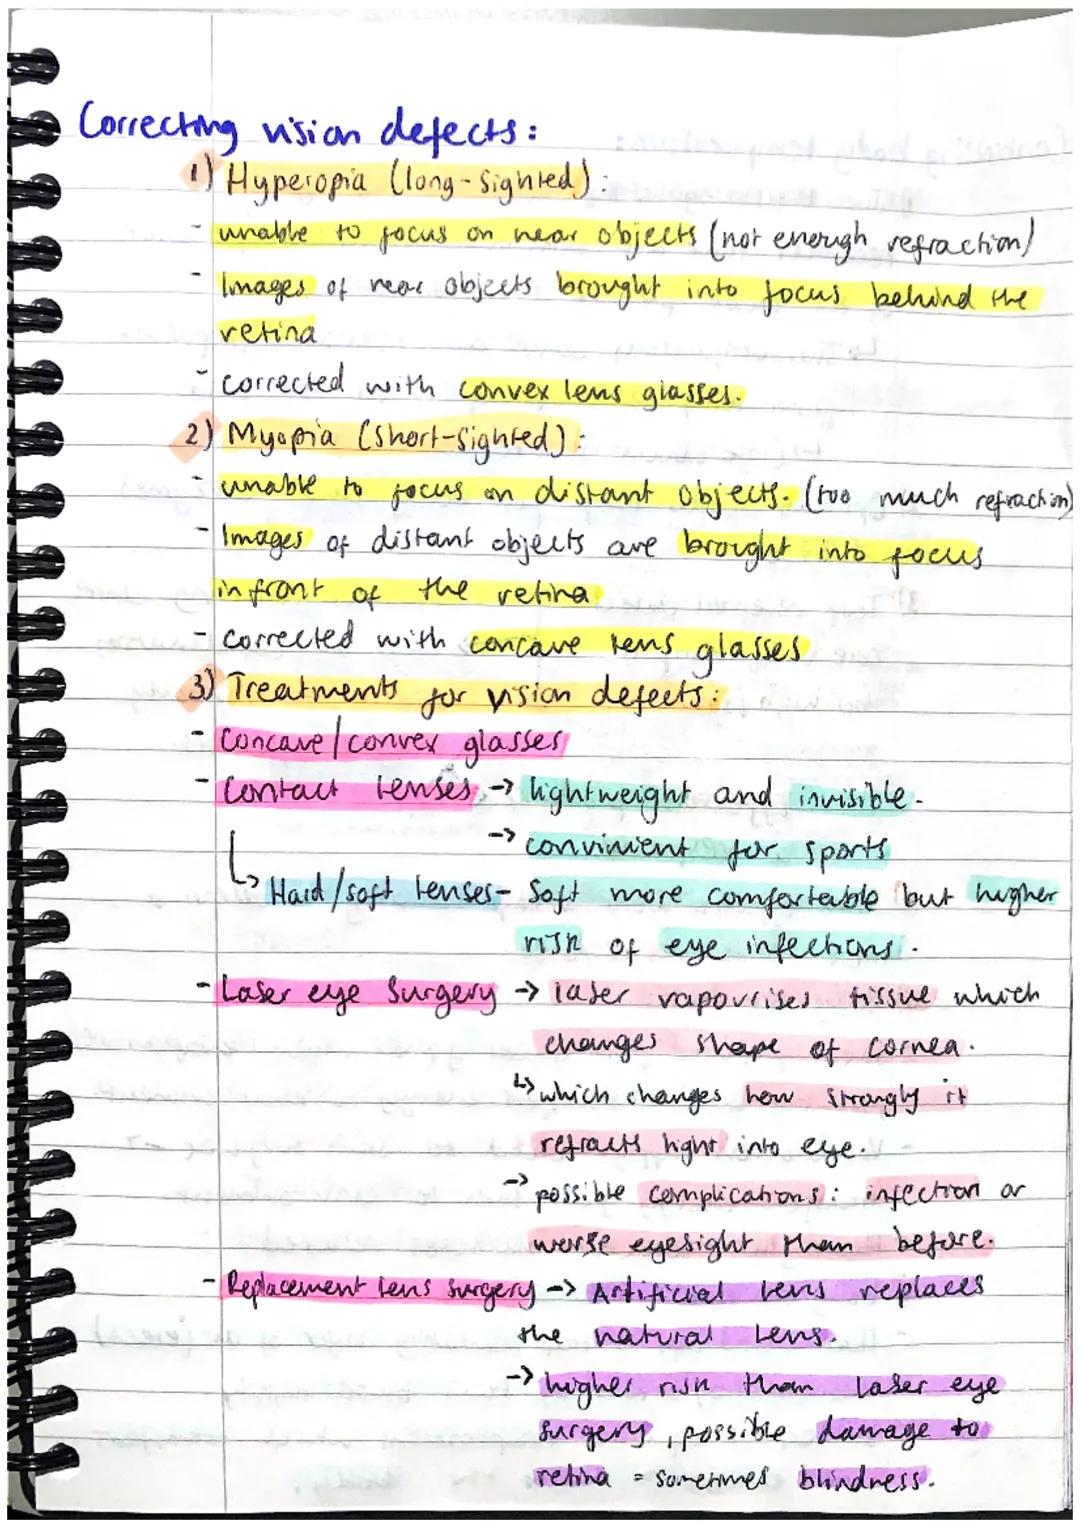 Correcting vision defects:
1) Hyperopia (long-sighted):
- unable to focus on near objects (not enough refraction)
- Images of near objects brought into focus behind the
retina
- corrected with convex lens glasses.
2) Myopia (short-sighted):
- unable to focus on distant objects. (too much refraction)
- Images of distant objects are brought into focus
infront of the retina
- corrected with concave lens glasses
3) Treatments for vision defects:
- Concave/convex glasses
- Contact lenses → lightweight and invisible.
→ convinient for sports
↳ Hard/soft lenses - Soft more comfortable but higher
risk of eye infections.
- Laser eye surgery → laser vapourises tissue which
changes shape of cornea.
↳ which changes how strongly it
refracts light into eye.
→ possible complications: infection or
worse eyesight than before.
- Replacement lens surgery → Artificial lens replaces
the natural lens.
→ higher risk than laser eye
surgery, possible damage to
retina = sometimes blindness.